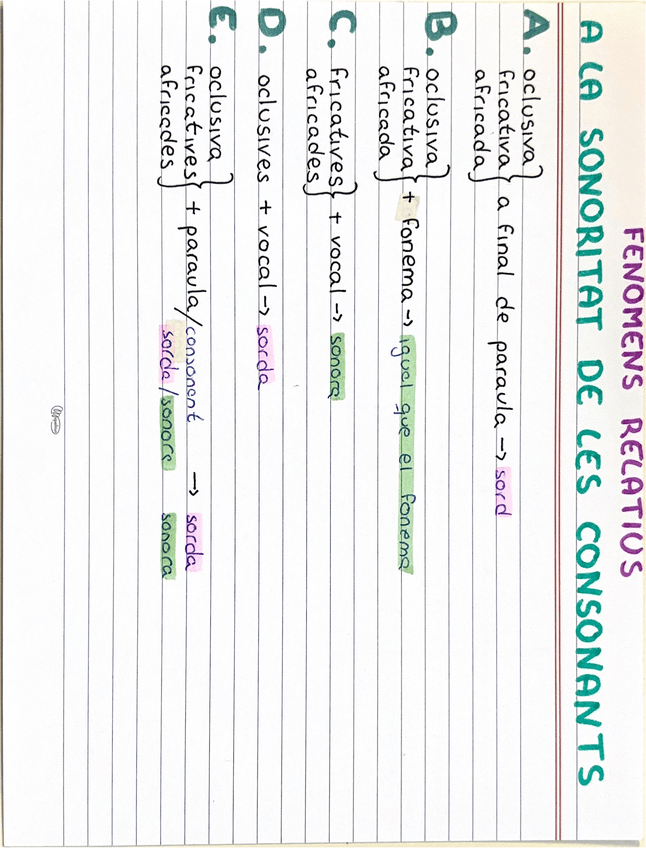 FENOMENS RELATIUS
A LA SONORITAT DE LES CONSONANTS
A. oclusiva
fricativa } a final de paraula → sord
africada
B. oclusiva
fricativa } + fonema → igual que el fonema
africada
C. fricatives } + vocal → sonora
africades
D. oclusives + vocal → sorda
E. oclusiva
fricatives } + paraula/consonent → sorda
africades sorda/sonora sonora